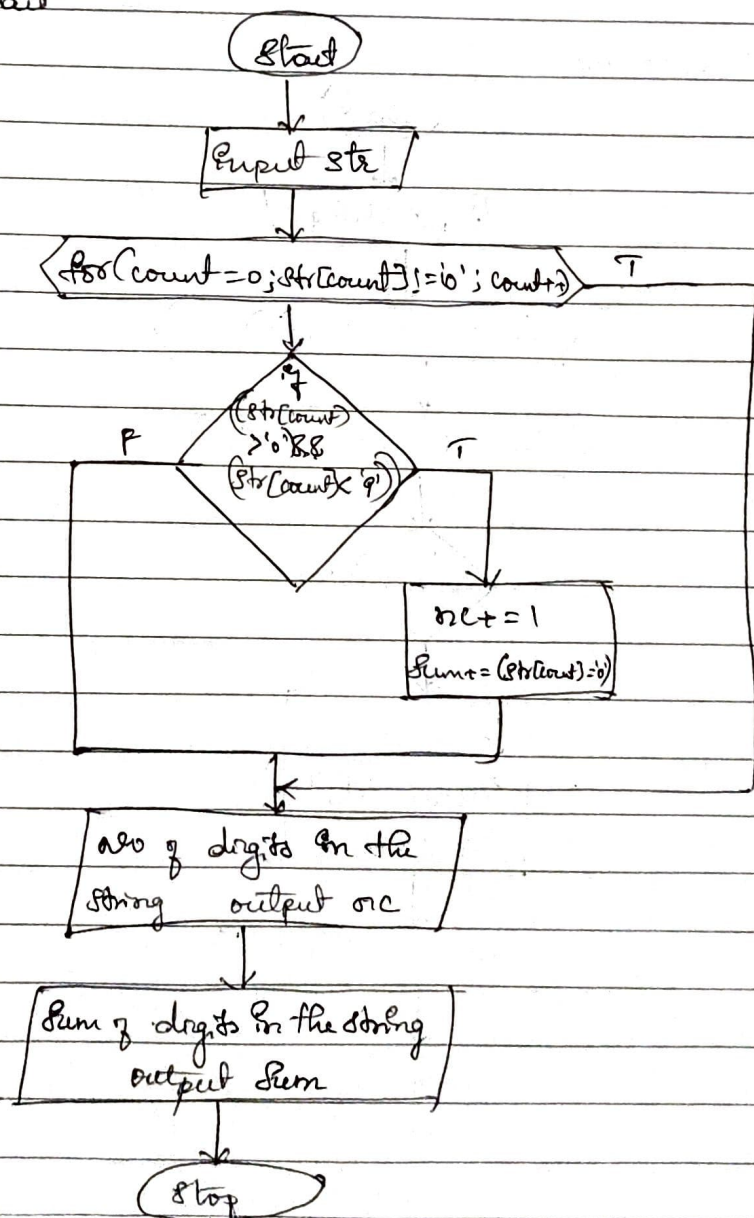 Start
Input str
for(count=0;str[count]!='\0'; count++)
T
if
(str[count]
>'0'&&
(str[count]<'9'))
F
T
nc+=1
Sum+=(str[count]='0')
no of digits in the
string output nc
Sum of digits in the string
output Sum
Stop